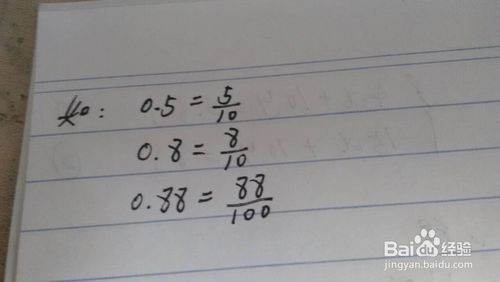 如: 0.5 = 5/10
0.8 = 8/10
0.88 = 88/100
Baidu 经验
jingyan.baidu.com